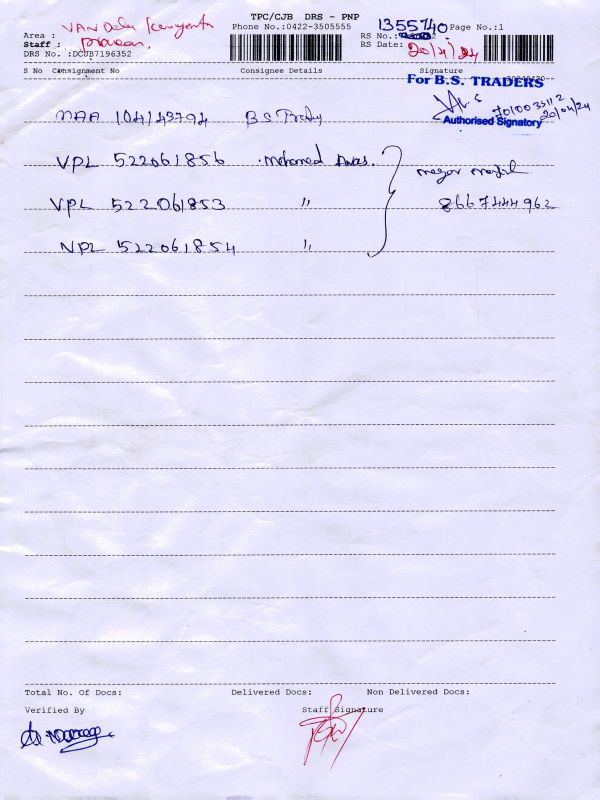 TPC/CJB DRS - PNP
Phone No.:0422-3505555
1355740 Page No.:1
Area :
Staff :
RS No.:
DRS No. :DCUB7196352
RS Date: 20/4/24
S No Consignment No Consignee Details Signature
For B.S. TRADERS
Authorised Signatory 20/04/24
MAA 104143794 B S
VPL 522061856 Mohamed
VPL 522061853 "
8667444962
NPL 522061854 "
Total No. Of Docs: Delivered Docs: Non Delivered Docs:
Verified By Staff Signature